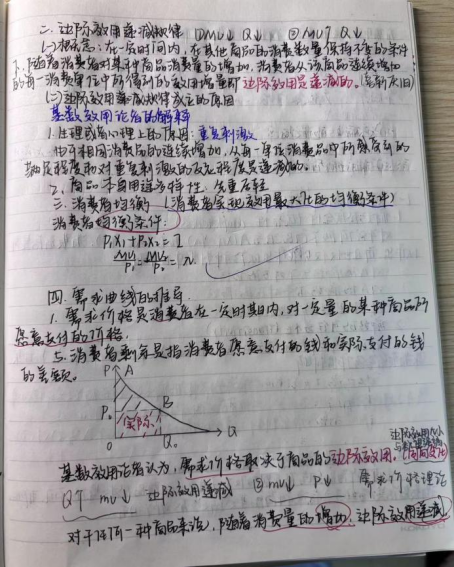 二. 边际效用递减规律 ①MU↓ Q↓ ②MU↑ Q↓
(一)概念: 在一定时间内, 在其他商品的消费数量保持不变的条件
下, 随着消费者对某种商品消费量的增加, 消费者从该商品连续增加
的每一消费单位中所得到的效用增量即边际效用是递减的。(喜新厌旧)
(二)边际效用递减规律成立的原因
基数效用论者的解释
1. 生理或者心理上的原因: 重复刺激
由于相同消费品的连续增加, 从每一单位消费品中所感受到的
满足程度和对重复刺激的反应程度是递减的。
2. 商品本身用途多样性, 先重后轻
三. 消费者均衡 (消费者实现效用最大化的均衡条件)
消费者均衡条件:
P₁X₁+P₂X₂=I
MU₁/P₁=MU₂/P₂=λ
四. 需求曲线的推导
1. 需求价格是消费者在一定时期内, 对一定量的某种商品所
愿意支付的价格.
五. 消费者剩余是指消费者愿意支付的钱和实际支付的钱
的差额。
P A
P₀ B
实际
0 Q₀ Q
基数效用论者认为, 需求价格取决于商品的边际效用. (同向变化)
Q↑ mu↓ 边际效用递减 ② mu↓ P↓ 需求价格理论
对于任何一种商品来说, 随着消费量的增加, 边际效用递减